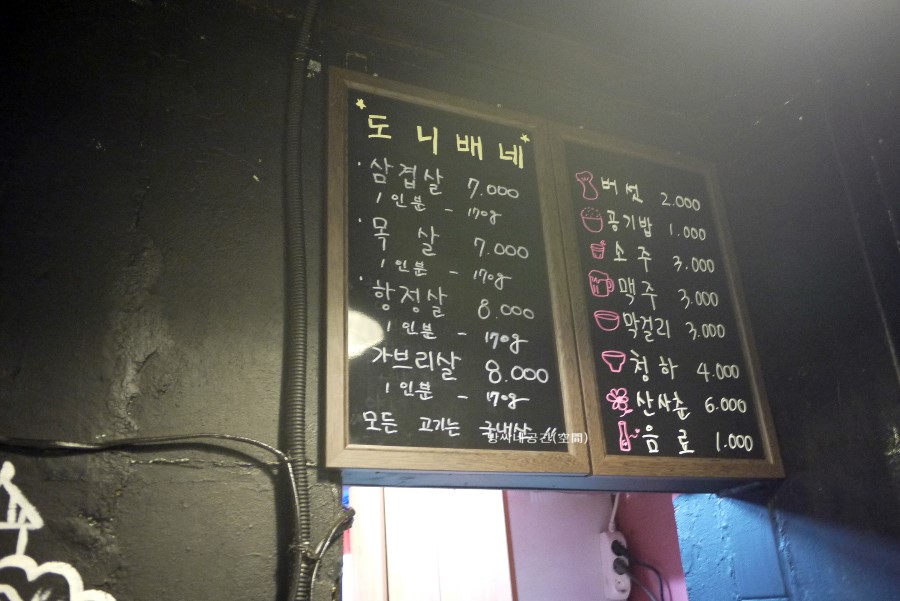 도니배네
삼겹살 7.000
1인분 - 170g
목살 7.000
1인분 - 170g
항정살 8.000
1인분 - 170g
가브리살 8.000
1인분 - 170g
모든 고기는 국내산
버섯 2.000
공기밥 1.000
소주 3.000
맥주 3.000
막걸리 3.000
청하 4.000
산사춘 6.000
음료 1.000